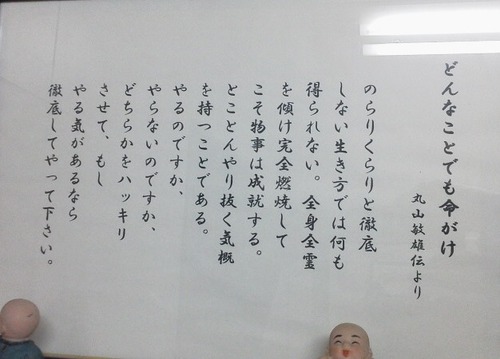 どんなことでも命がけ
丸山敏雄伝より
のらりくらりと徹底
しない生き方では何も
得られない。全身全霊
を傾け完全燃焼して
こそ物事は成就する。
とことんやり抜く気概
を持つことである。
やるのですか、
やらないのですか、
どちらかをハッキリ
させて、もし
やる気があるなら
徹底してやって下さい。